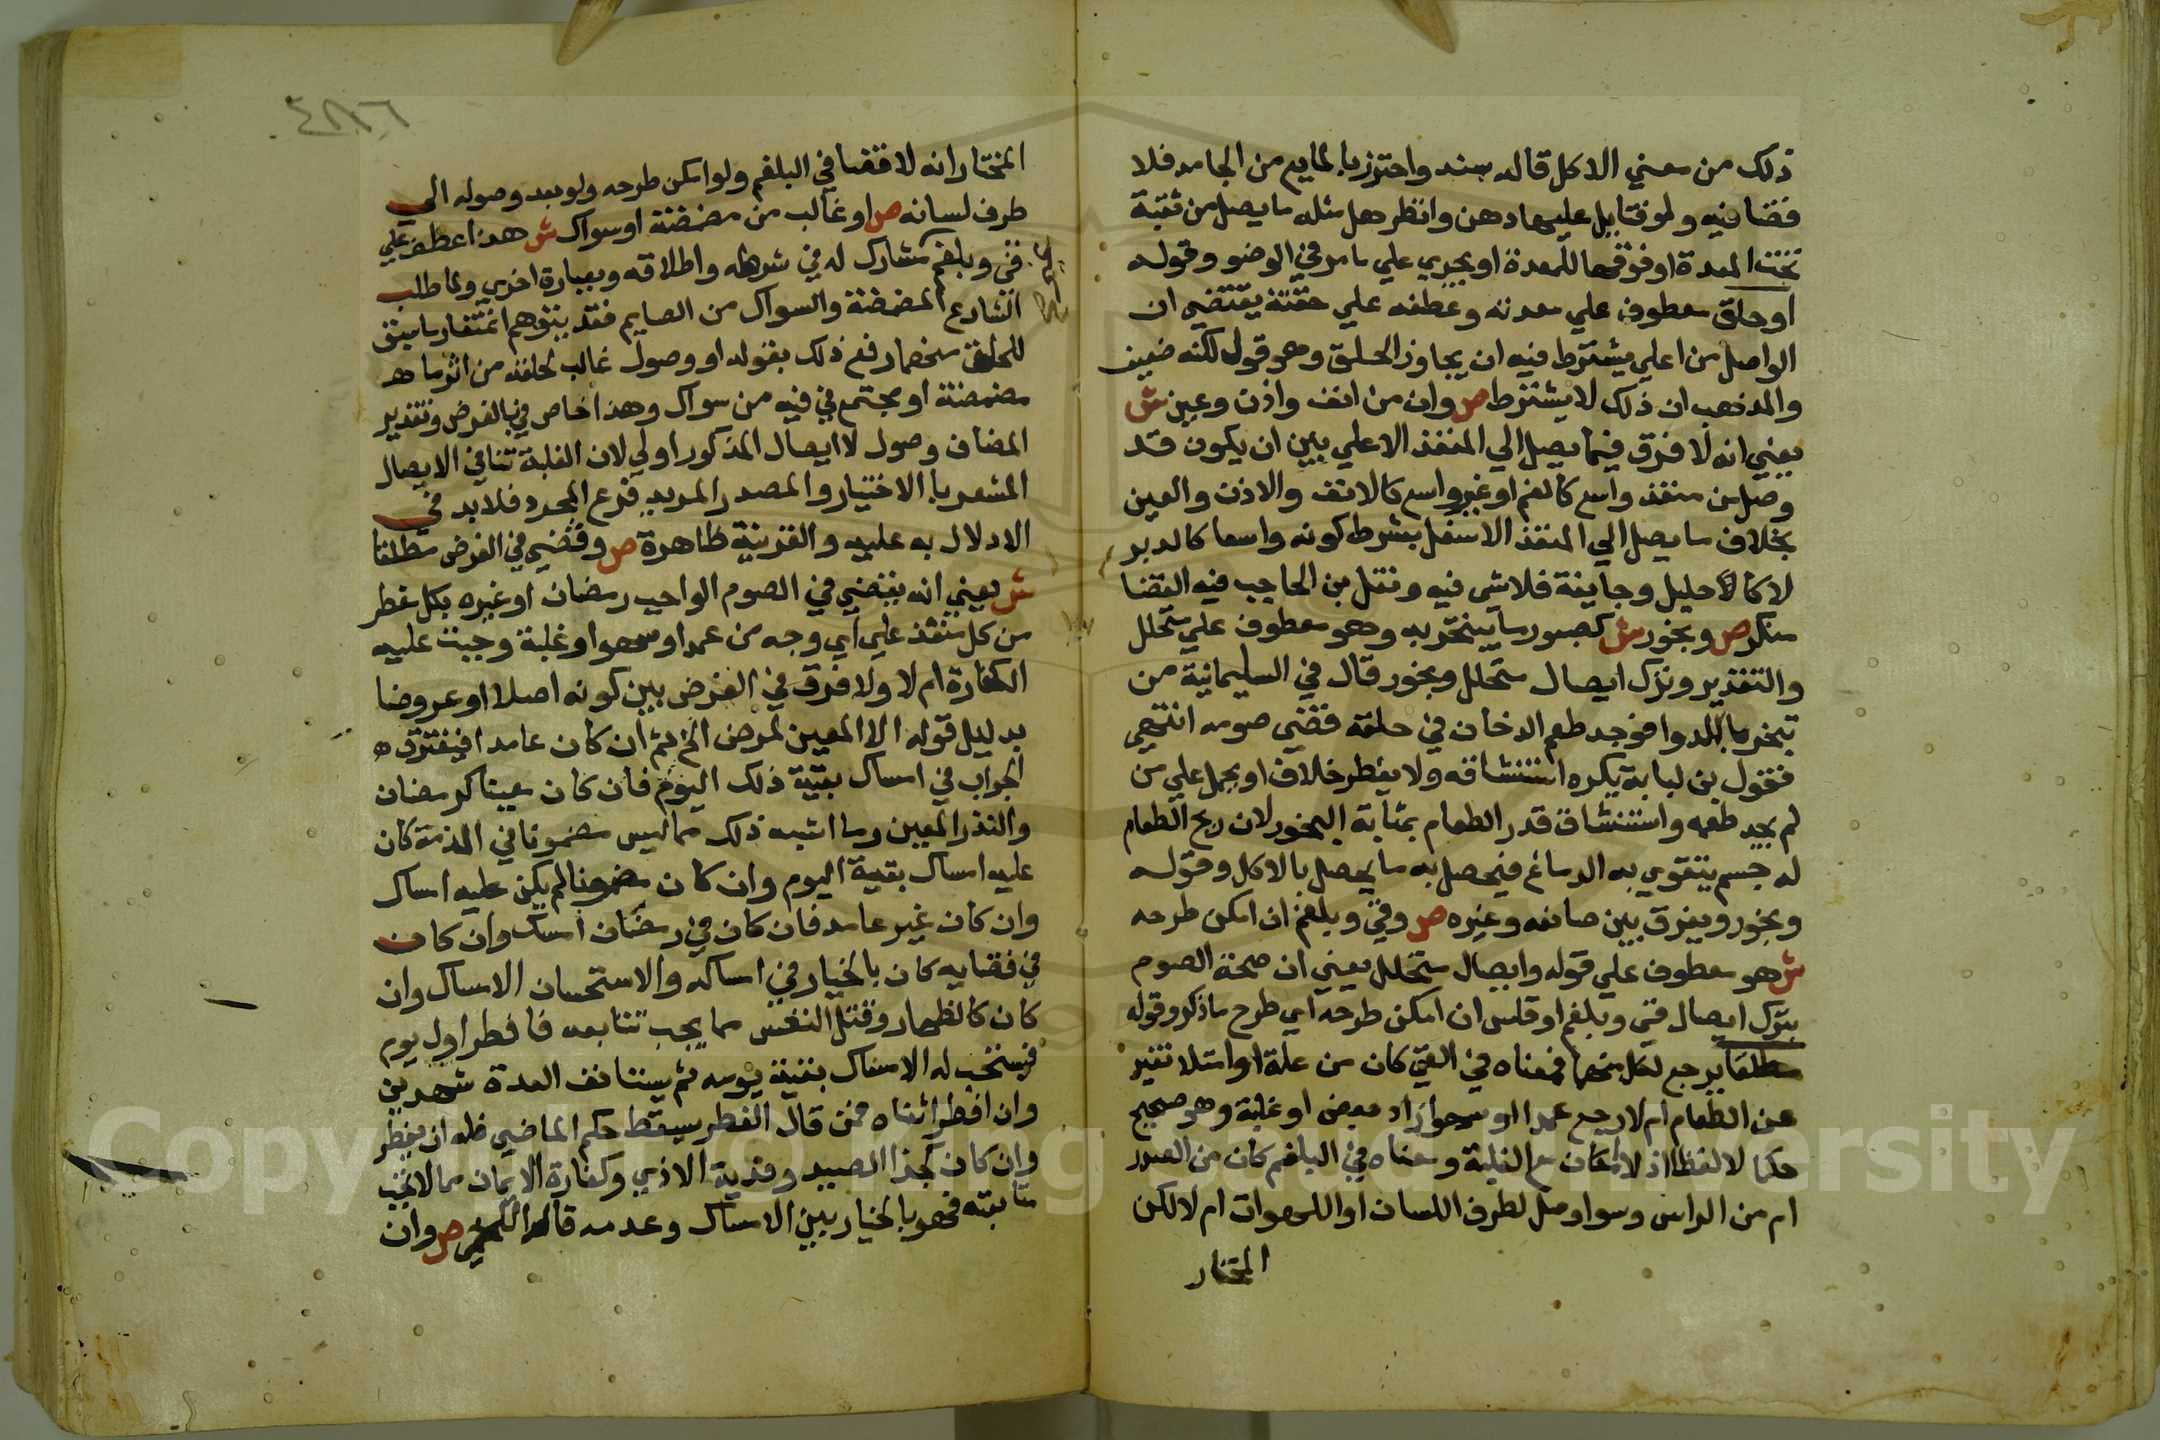 ذلك من معني الاكل قاله سند واحترز بالمايع من الجامد فلا
قضا فيه ولو فتايل عليها دهن وانظر هل مثله ما يصل من ثقبة
تحت المعدة او فوقها للمعدة او يجري علي ما مر في الوضو وقوله
او حلق معطوف علي معدته وعطفه علي حقنة يقتضي ان
الواصل من اعلي يشترط فيه ان يجاوز الحلق وهو قول لكنه ضعيف
والمذهب ان ذلك لا يشترط ص وان من انف واذن وعين ش
يعني انه لا فرق فيما يصل الي المنفذ الاعلي بين ان يكون قد
وصل من منفذ واسع كالفم او غير واسع كالانف والاذن والعين
بخلاف ما يصل الي المنفذ الاسفل بشرط كونه واسعا كالدبر
لا كالاحليل وجايفة فلا شي فيه ونقل بن الحاجب فيه القضا
منكر ص وبخور ش كصبور ما يتبخر به وهو معطوف علي متحلل
والتقدير وترك ايصال متحلل وبخور قال في السليمانية من
تبخر بالدوا فوجد طعم الدخان في حلقه قضي صومه انتهي
فقول بن لبابة يكره استنشاقه ولا يفطر خلاف او يحمل علي من
لم يجد طعمه واستنشاق قدر الطعام بمثابة البخور لان ريح الطعام
له جسم يتقوي به الدماغ فيحصل به ما يحصل بالاكل وقوله
وبخور ويفرق بين صانعه وغيره ص وقي وبلغم ان امكن طرحه
ش هو معطوف علي قوله وايصال متحلل يعني ان صحة الصوم
بترك ايصال قي وبلغم او قلس ان امكن طرحه اي طرح ما ذكر وقوله
مطلقا يرجع لكل منهما فمعناه في القي كان من علة او امتلا تغير
عن الطعام ام لا رجع عمدا او سهوا زاد بعض او غلبة وهو صحيح
حكما لا لفظا اذ لا امكان مع الغلبة ومعناه في البلغم كان من الصدر
ام من الراس وسوا وصل لطرف اللسان او اللهوات ام لا لكن
المختار
٤٨٨٦
المختار انه لا قضا في البلغم ولو امكن طرحه ولو بعد وصوله الي
طرف لسانه ص او غالب من مضمضة او سواك ش هذا عطف علي
قي وبلغم مشارك له في شرطه واطلاقه وبعبارة اخري ولما طلب
الشارع المضمضة والسواك من الصايم فقد يتوهم اغتفار ما يسبق
للحلق منهما رفع ذلك بقوله او وصول غالب لحلقه من اثر ماء
مضمضة او يجتمع في فيه من سواك وهذا خاص في بالفرض وتقدير
المضاف وصول لا ايصال المذكور اولي لان الغلبة تنافي الايصال
المشعر بالاختيار والمصدر المزيد فرع المجرد فلا بد في
الادلال به عليه والقرينة ظاهرة ص وقضي في الفرض مطلقا
ش يعني انه يقضي في الصوم الواجب رمضان او غيره بكل فطر
من كل منفذ علي اي وجه من عمد او سهو او غلبة وجبت عليه
الكفارة ام لا ولا فرق في الفرض بين كونه اصلا او عروضا
بدليل قوله الا المعين لمرض الخ ثم ان كان عامدا فيفترق
الجواب في امساك بقية ذلك اليوم فان كان معينا كرمضان
والنذر المعين وما اشبه ذلك مما ليس مضمونا في الذمة كان
عليه امساك بقية اليوم وان كان مضمونا لم يكن عليه امساك
وان كان غير عامد فان كان في رمضان امسك وان كان
في قضايه كان بالخيار في امساكه والاستحسان الامساك وان
كان كالظهار وقتل النفس مما يجب تتابعه فافطر اول يوم
فيستحب له الامساك بقية يومه ثم يستانف العدة شهرين
وان افطر اثناه فمن قال الفطر يسقط حكم الماضي فله ان يفطر
وان كان كجزا الصيد وفدية الاذي وكفارة الايمان مما لا تجب
متابعته فهو بالخيار بين الامساك وعدمه قاله اللخمي ص وان
Copyright © King Saud University